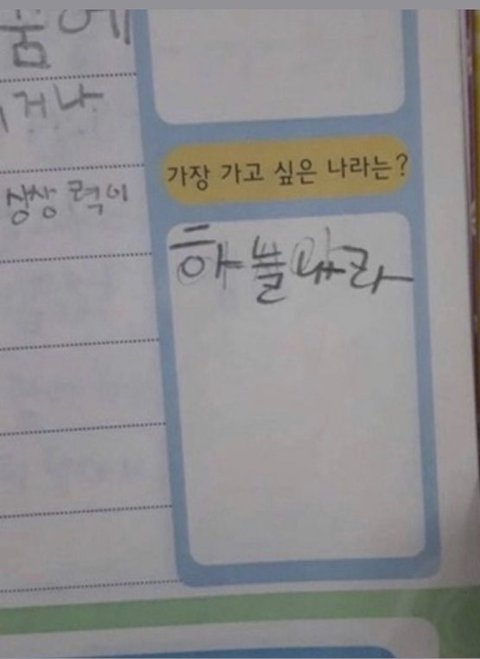 거나
상상력이
가장 가고 싶은 나라는?
하늘나라